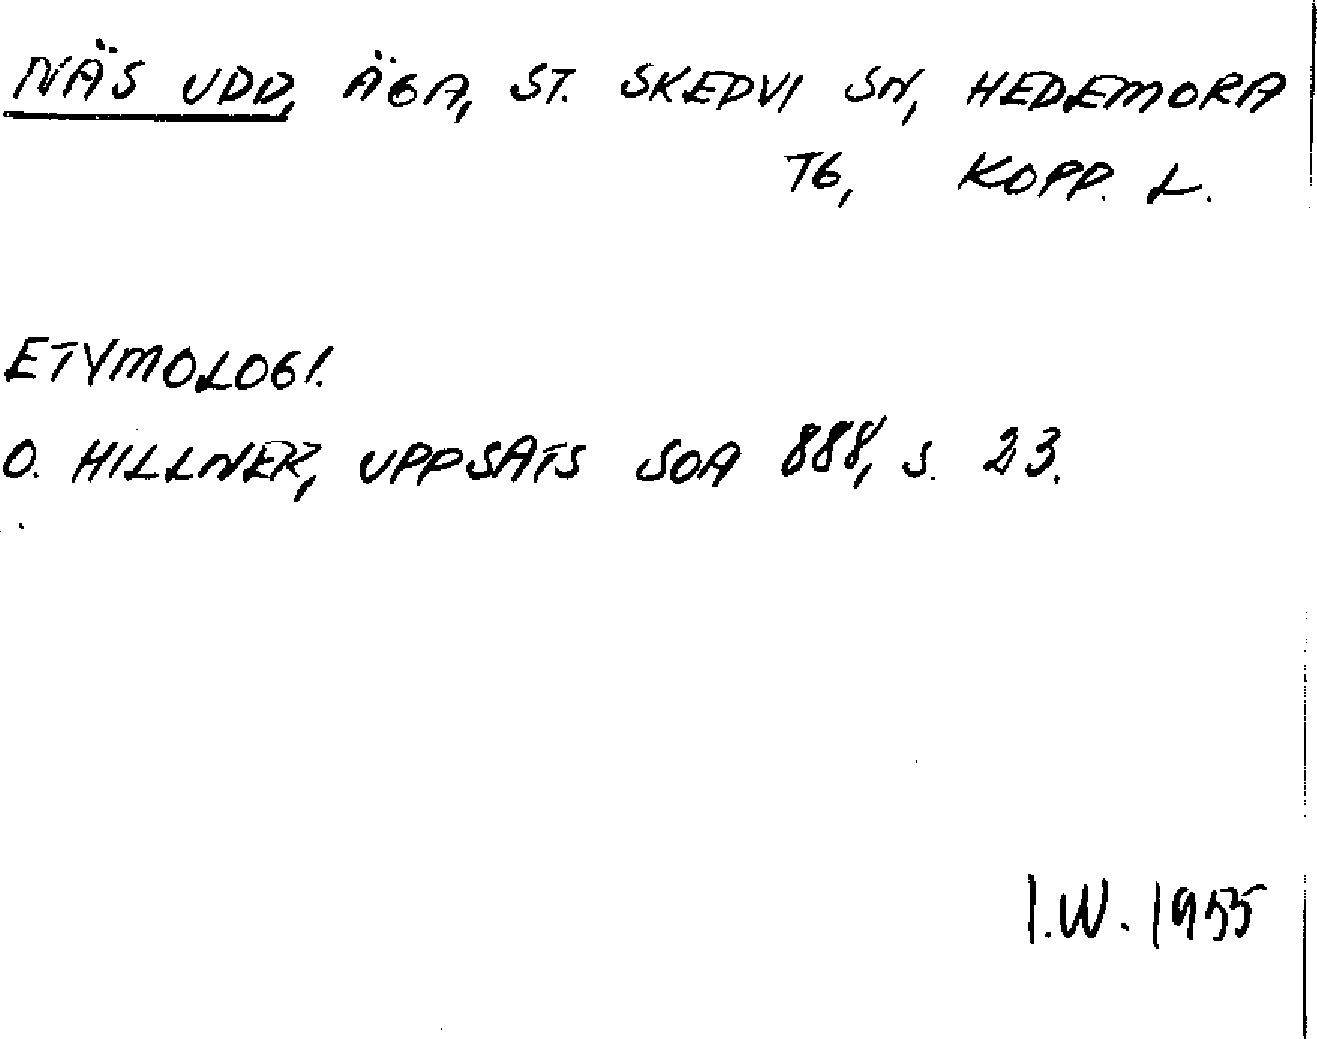 NÄS UDD, ÄGA, ST. SKEDVI SN, HEDEMORA
TG, KOPP. L.
ETYMOLOGI.
O. HILLNER, UPPSATS SOA 888, S. 23.
I.W. 1955